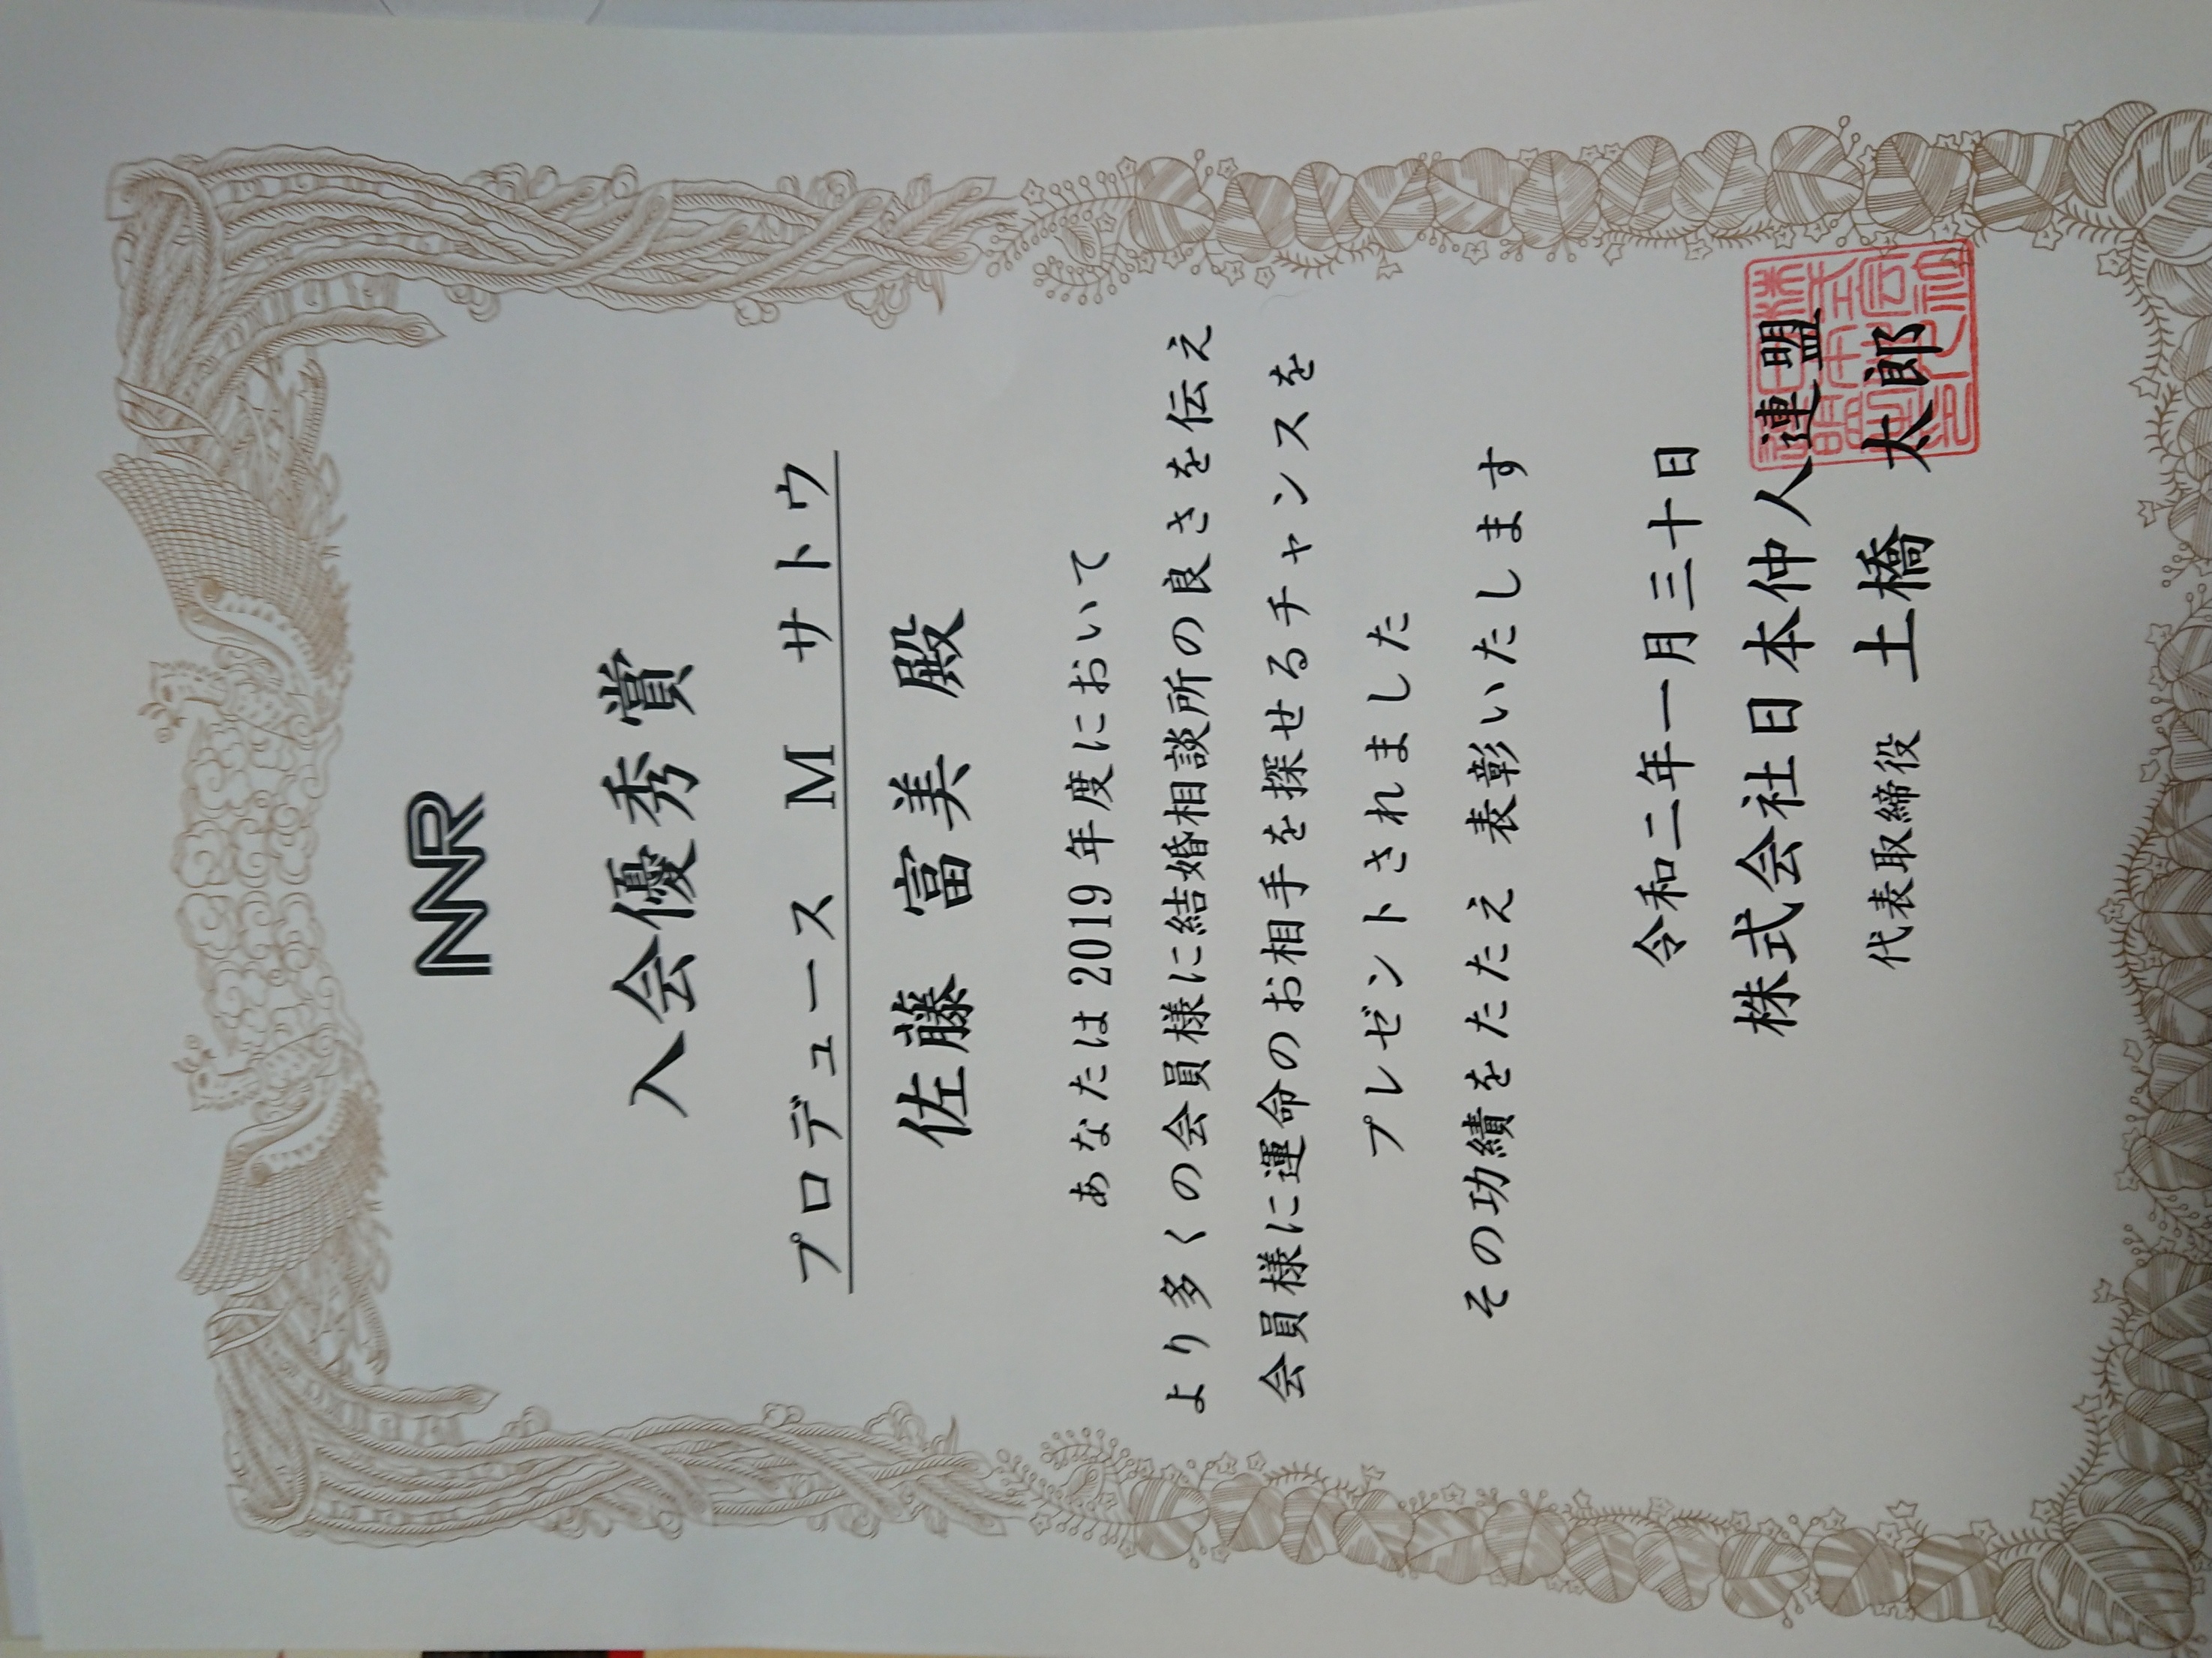 NNR
入会優秀賞
プロデュース M サトウ
佐藤 富美 殿
あなたは2019年度において
より多くの会員様に結婚相談所の良さを伝え
会員様に運命のお相手を探せるチャンスを
プレゼントされました
その功績をたたえ 表彰いたします
令和二年一月三十日
株式会社日本仲人連盟
代表取締役 土橋 太郎